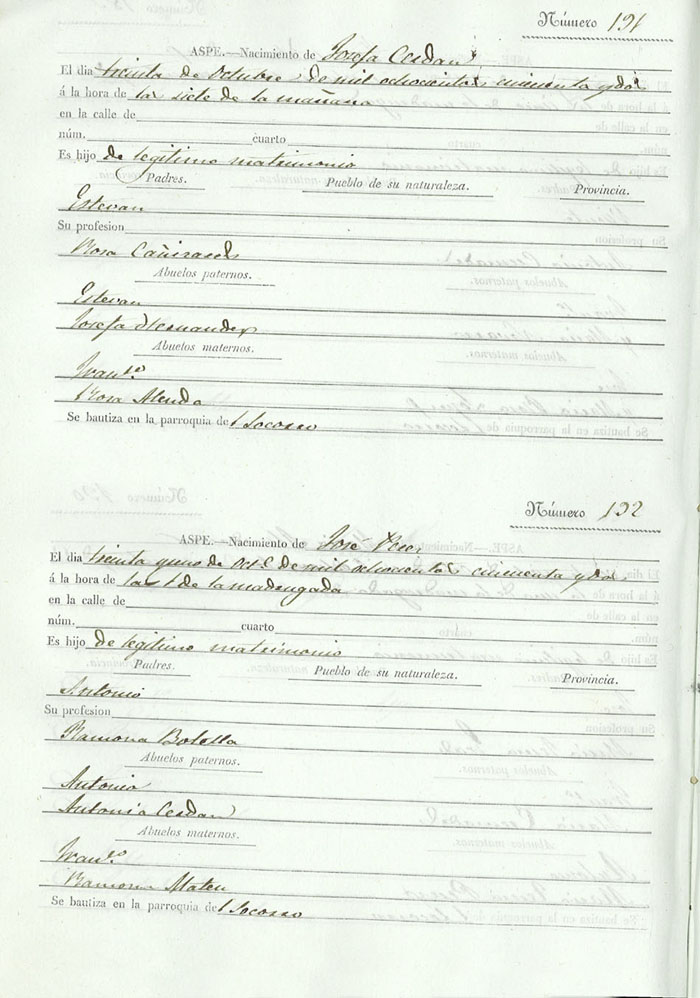 Número 191
ASPE.—Nacimiento de Josefa Cerdan
El dia treinta de Octubre de mil ochocientos cincuenta y dos
á la hora de las siete de la mañana
en la calle de
núm. cuarto
Es hijo de legitimo matrimonio
Padres. Pueblo de su naturaleza. Provincia.
Estevan
Su profesion
Rosa Cañizares
Abuelos paternos.
Estevan
Josefa Hernandez
Abuelos maternos.
Fran.co
Rosa Alenda
Se bautiza en la parroquia del Socorro
Número 192
ASPE.—Nacimiento de José
El dia treinta y uno de Oct.e de mil ochocientos cincuenta y dos
á la hora de la 1 de la madrugada
en la calle de
núm. cuarto
Es hijo de legitimo matrimonio
Padres. Pueblo de su naturaleza. Provincia.
Antonio
Su profesion
Ramona Botella
Abuelos paternos.
Antonio
Antonia Cerdan
Abuelos maternos.
Fran.co
Ramona Mateu
Se bautiza en la parroquia del Socorro